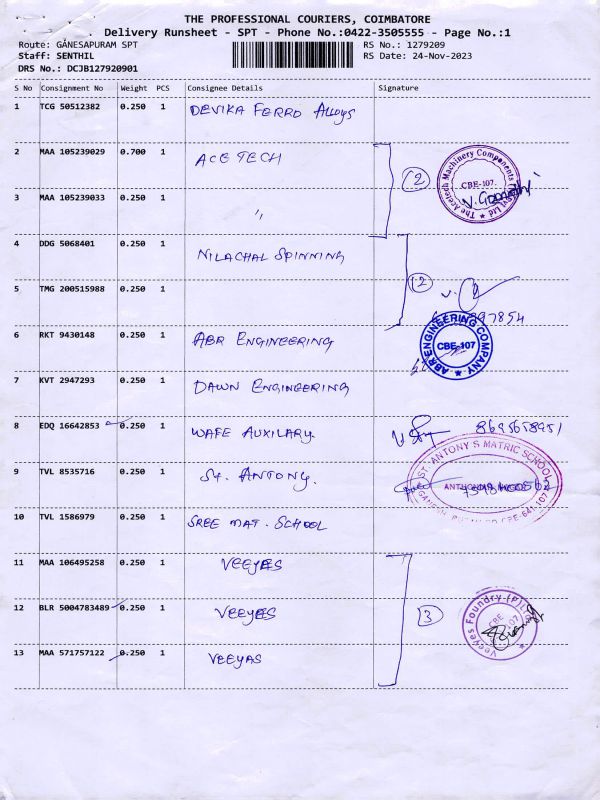 THE PROFESSIONAL COURIERS, COIMBATORE
Delivery Runsheet - SPT - Phone No.:0422-3505555 - Page No.:1
Route: GANESAPURAM SPT RS No.: 1279209
Staff: SENTHIL RS Date: 24-Nov-2023
DRS No.: DCJB127920901
S No Consignment No Weight PCS Consignee Details Signature
1 TCG 50512382 0.250 1 DEVIKA FERRO Alloys
2 MAA 105239029 0.700 1 ACE TECH
2 The Acetech Machinery Components Pvt Ltd CBE-107.
3 MAA 105239033 0.250 1 "
4 DDG 5068401 0.250 1 NILACHAL SPINNING
2
5 TMG 200515988 0.250 1
6 RKT 9430148 0.250 1 ABR ENGINEERING
ABR ENGINEERING COMPANY CBE-107
7 KVT 2947293 0.250 1 DAWN ENGINEERING
8 EDQ 16642853 0.250 1 WAFE AUXILARY 8695658951
9 TVL 8535716 0.250 1 St. ANTONY.
ST. ANTONY'S MATRIC SCHOOL
10 TVL 1586979 0.250 1 SREE MAT. SCHOOL
11 MAA 106495258 0.250 1 VEEYES
12 BLR 5004783489 0.250 1 VEEYES
3 Veeyes Foundry (P) Ltd CBE 107
13 MAA 571757122 0.250 1 VEEYAS